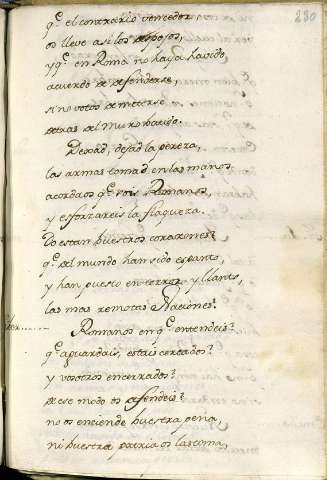 230
q̃ el contrario vencedor,
os lleve asi los despojos,
y q̃ en Roma no haya havido
acuerdo de defenderse,
si no votos de meterse
detras del muro batido.
Dexad, dejad la pereza,
las armas tomad en las manos
acordaos q̃ sois Romanos,
y esforzareis la flaqueza.
Do estan buestros corazones?
q̃ del mundo han sido espanto,
y han puesto en terror, y llanto,
las mas remotas Naciones?
Romanos en q̃ entendeis?
q̃ aguardais, estais cercados?
y vosotros encerrados?
de ese modo os defendeis?
no os enciende buestra pena
ni buestra patria os lastima,